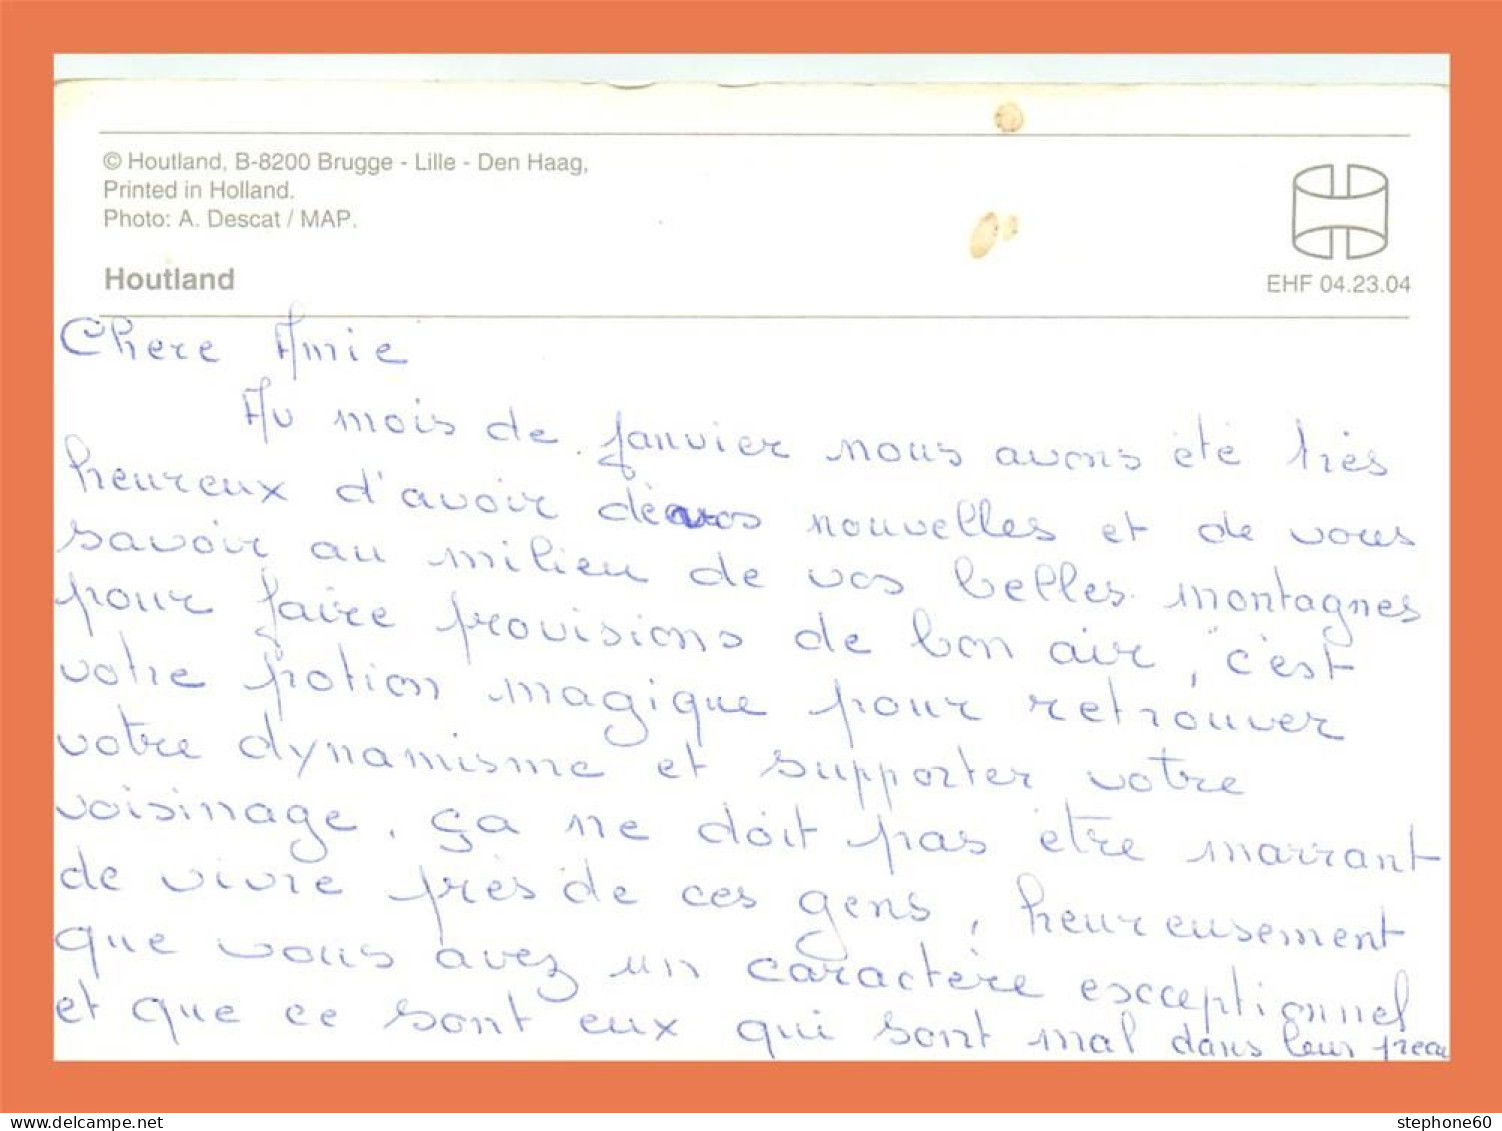 © Houtland, B-8200 Brugge - Lille - Den Haag,
Printed in Holland.
Photo: A. Descat / MAP.
Houtland
EHF 04.23.04
Chere Amie
Au mois de janvier nous avons été très
heureux d'avoir de vos nouvelles et de vous
savoir au milieu de vos belles montagnes
pour faire provisions de bon air, c'est
votre potion magique pour retrouver
votre dynamisme et supporter votre
voisinage. ça ne doit pas être marrant
de vivre près de ces gens, heureusement
que vous avez un caractère escceptionnel
et que ce sont eux qui sont mal dans leur peau
stephone60